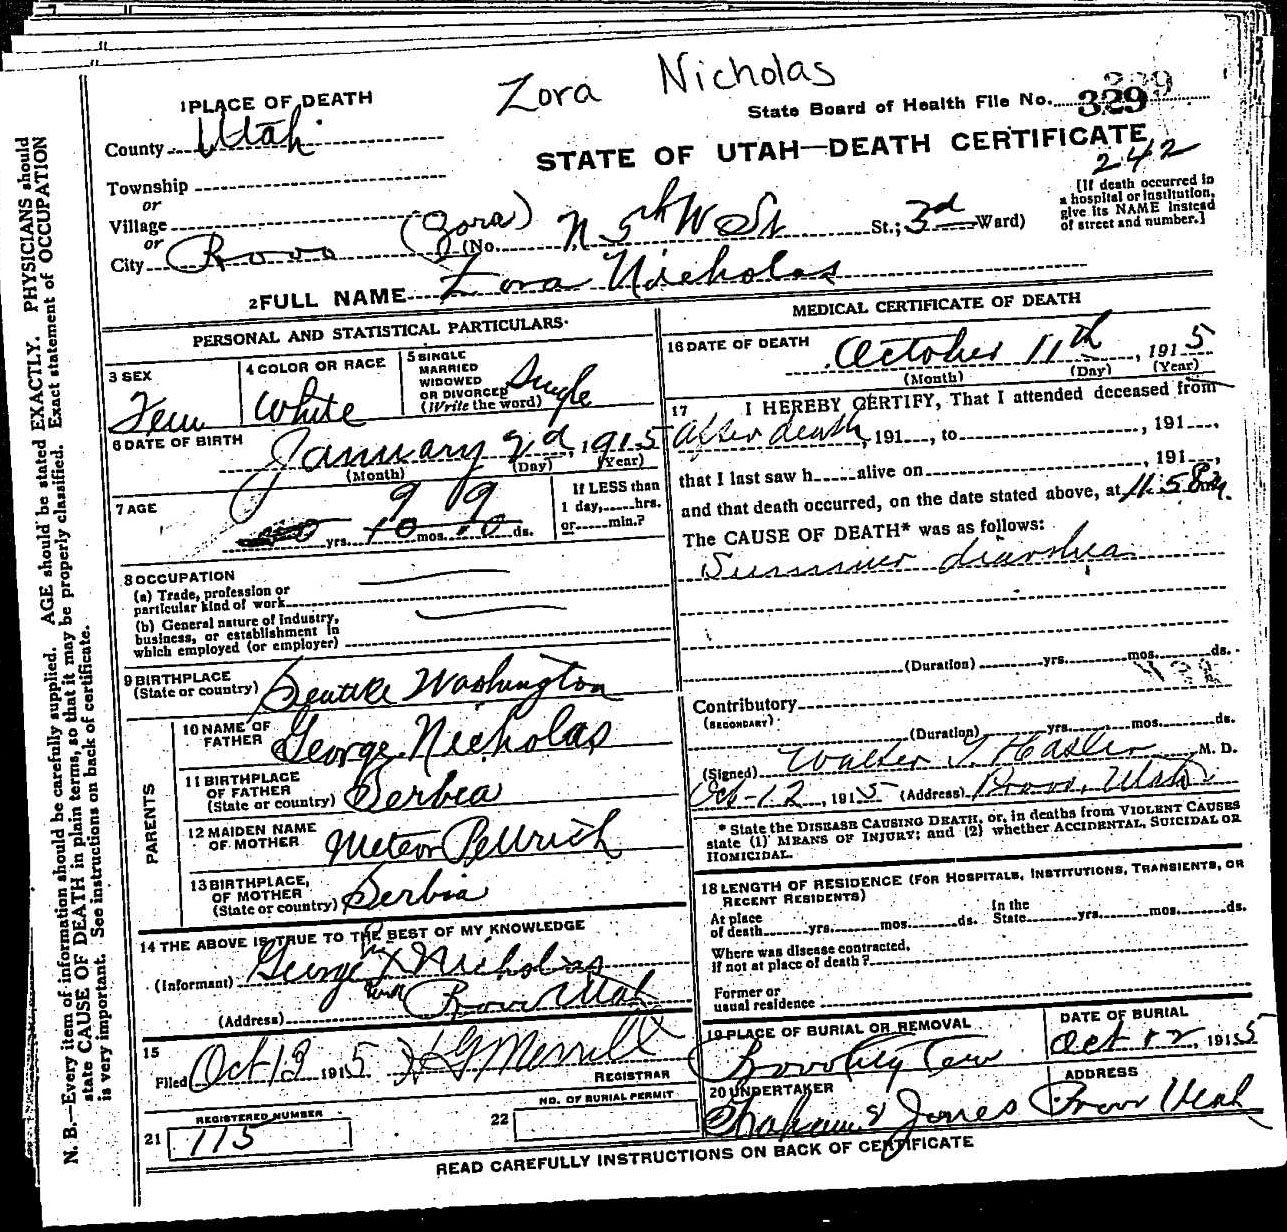 Zora Nicholas
1 PLACE OF DEATH
State Board of Health File No. 329
329
County Utah
STATE OF UTAH—DEATH CERTIFICATE
242
Township
or
Village
or
City Provo (Zora) (No. N 5th W St St.; 3rd Ward)
[If death occurred in
a hospital or institution,
give its NAME instead
of street and number.]
2 FULL NAME Zora Nicholas
PERSONAL AND STATISTICAL PARTICULARS
3 SEX
Fem
4 COLOR OR RACE
White
5 SINGLE
MARRIED
WIDOWED
OR DIVORCED
(Write the word)
Single
6 DATE OF BIRTH
January 2d, 1915
(Month) (Day) (Year)
7 AGE
9 9
yrs. 10 mos. 10 ds.
If LESS than
1 day,.....hrs.
or.....min.?
8 OCCUPATION
(a) Trade, profession or
particular kind of work
(b) General nature of industry,
business, or establishment in
which employed (or employer)
9 BIRTHPLACE
(State or country) Seattle Washington
PARENTS
10 NAME OF
FATHER George Nicholas
11 BIRTHPLACE
OF FATHER
(State or country) Serbia
12 MAIDEN NAME
OF MOTHER Meteor
13 BIRTHPLACE,
OF MOTHER
(State or country) Serbia
14 THE ABOVE IS TRUE TO THE BEST OF MY KNOWLEDGE
his
(Informant) George X Nicholas
mark
(Address) Provo Utah
15
Filed Oct 13 1915 H G Merrill
REGISTRAR
REGISTERED NUMBER
21 115
NO. OF BURIAL PERMIT
22
MEDICAL CERTIFICATE OF DEATH
16 DATE OF DEATH
October 11th, 1915
(Month) (Day) (Year)
17 I HEREBY CERTIFY, That I attended deceased from
After death, 191...., to , 191....,
that I last saw h.....alive on , 191....,
and that death occurred, on the date stated above, at 11.58 m.
The CAUSE OF DEATH* was as follows:
Summer diarrhea
(Duration) yrs. mos. ds.
Contributory
(SECONDARY)
(Duration) yrs. mos. ds.
(Signed) Walter T. Hasler M. D.
Oct-12, 1915 (Address) Provo, Utah
* State the DISEASE CAUSING DEATH, or, in deaths from VIOLENT CAUSES
state (1) MEANS OF INJURY; and (2) whether ACCIDENTAL, SUICIDAL OR
HOMICIDAL.
18 LENGTH OF RESIDENCE (FOR HOSPITALS, INSTITUTIONS, TRANSIENTS, OR
RECENT RESIDENTS)
At place
of death yrs. mos. ds.
In the
State yrs. mos. ds.
Where was disease contracted,
if not at place of death?
Former or
usual residence
19 PLACE OF BURIAL OR REMOVAL
Provo City Cem
DATE OF BURIAL
Oct 12, 1915
20 UNDERTAKER
Graham & Jones
ADDRESS
Provo Utah
READ CAREFULLY INSTRUCTIONS ON BACK OF CERTIFICATE
N. B.—Every item of information should be carefully supplied. AGE should be stated EXACTLY. PHYSICIANS should
state CAUSE OF DEATH in plain terms, so that it may be properly classified. Exact statement of OCCUPATION
is very important. See instructions on back of certificate.